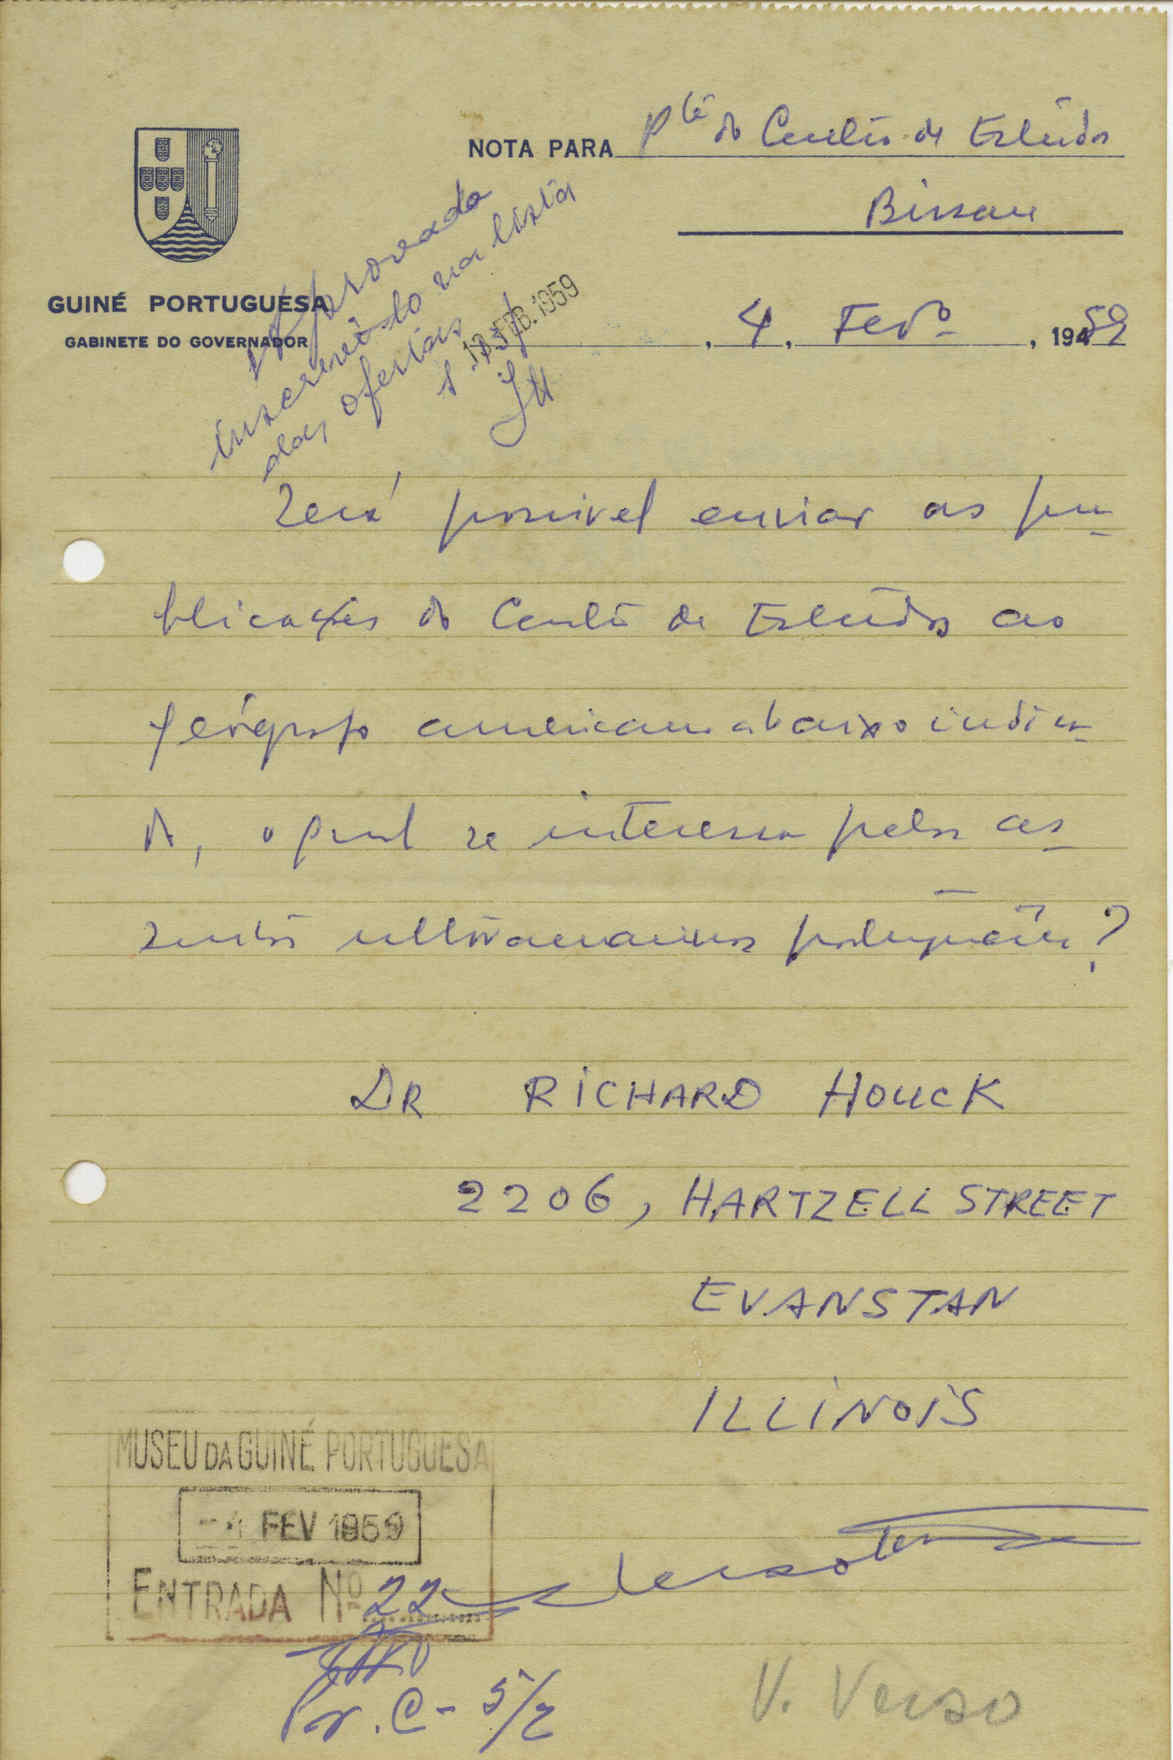 NOTA PARA Pte do Centro de Estudos
Bissau
GUINÉ PORTUGUESA
GABINETE DO GOVERNADOR
, 4 , Fevº , 1959
Aprovada
inscrevê-lo na lista
das ofertas
13 FEB. 1959
Será possivel enviar as pu-
blicações do Centro de Estudos ao
geógrafo americano abaixo indica-
do, o qual se interessa pelos as-
suntos ultramarinos portugueses?
DR RICHARD HOUCK
2206, HARTZELL STREET
EVANSTAN
ILLINOIS
MUSEU DA GUINÉ PORTUGUESA
-4 FEV 1959
ENTRADA Nº 22
Pr. C - 5/2
V. Verso